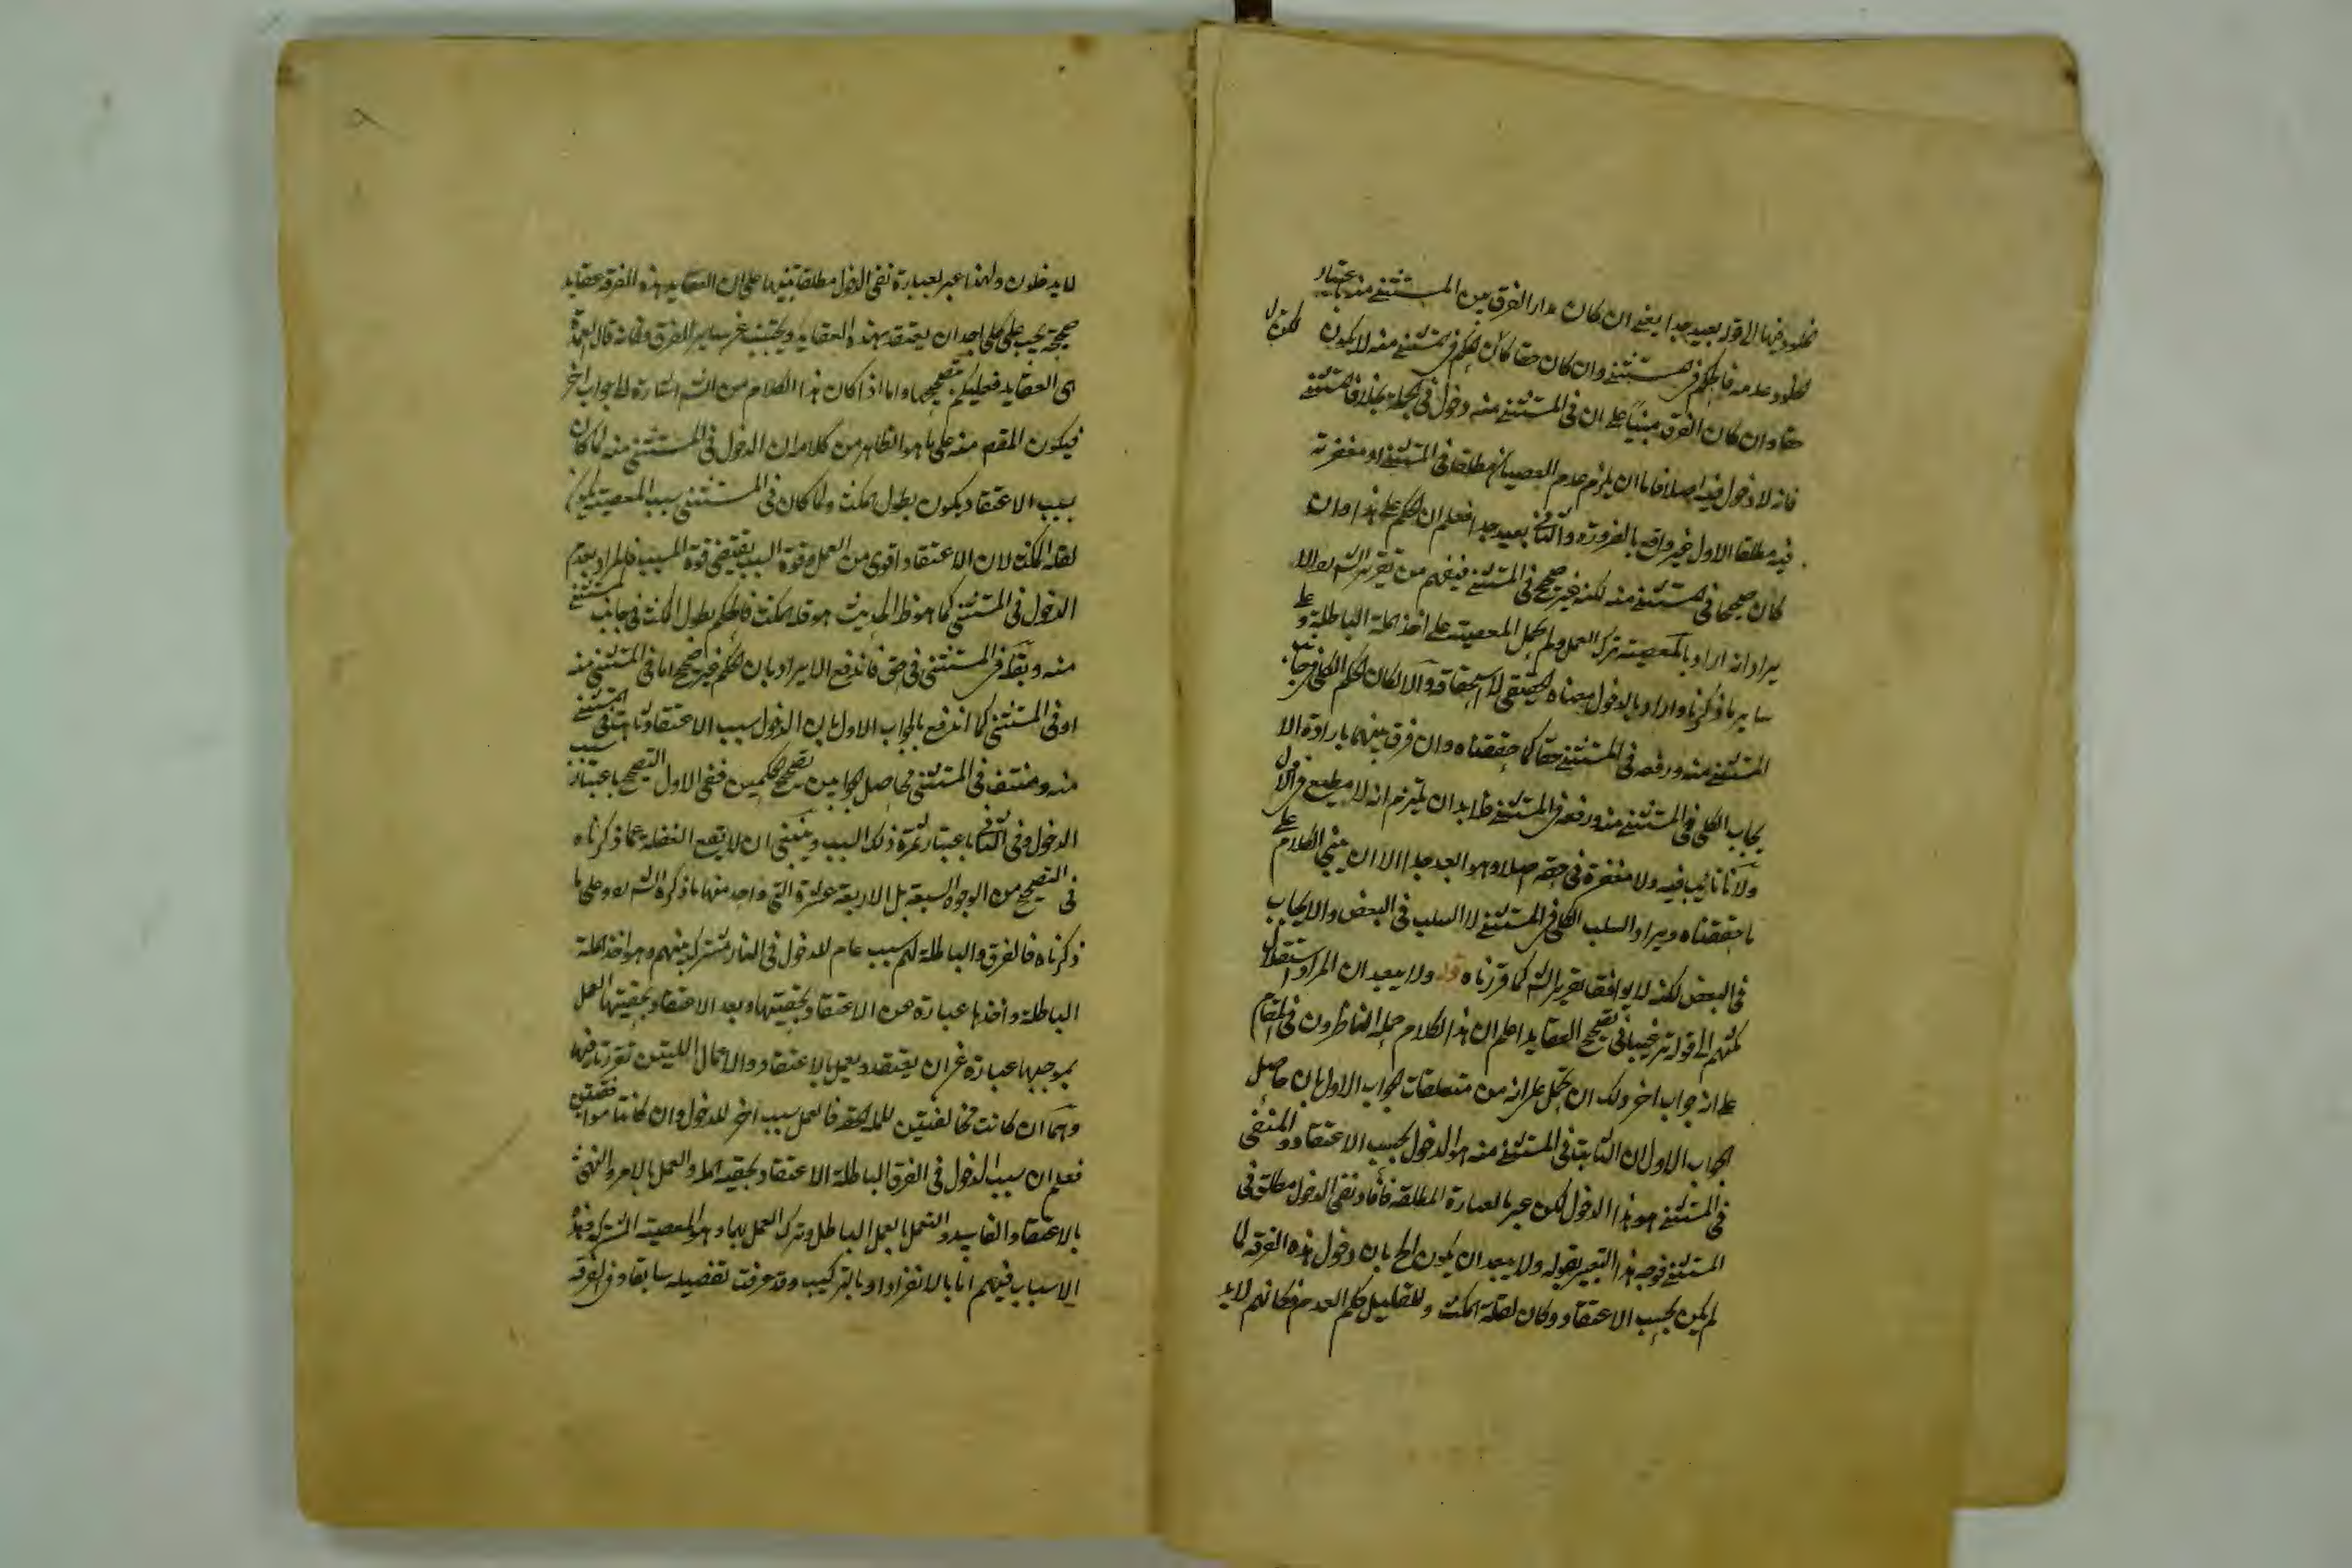 الخلود فيها الى قوله بعيد جدا يعنى ان كان مدار الفرق بين المستثنى منه باعتبار
الخلود وعدمه فالحكم فى المستثنى وان كان حقا كان الحكم فى المستثنى منه لا يكون
حقا وان كان الفرق مبنيا على ان فى المستثنى منه دخول فى الجملة بخلاف المستثنى
فانه لا دخول فيه اصلا فاما ان يلزم عدم العصيان مطلقا فى المستثنى او مغفرته
فيه مطلقا الاول غير واقع بالضرورة والثانى بعيد جدا فعلم ان الحكم على هذا وان
كان صحيحا فى المستثنى منه لكنه غير صحيح فى المستثنى فيفهم من تقرير الش
يراد انه اراد بالمعصية ترك العمل ولم يحمل المعصية على اخذ الملة الباطلة و على
سائر ما ذكرنا واراد بالدخول معناه الحقيقى لا استحقاقه والا لكان الحكم الكلى فى جانب
المستثنى منه ورفعه فى المستثنى حقا كما حققناه وان فرق بينهما بارادة الا
يجاب الكلى فى المستثنى منه ورفعه فى المستثنى فلا بد ان يلتزم انه لا مطيع فى الاول
ولا تائب فيه ولا مغفرة فى حقه اصلا وهو ابعد جدا الا ان يبنى الكلام على
ما حققناه ويراد السلب الكلى فى المستثنى لا السلب فى البعض والايجاب
فى البعض لكنه لا يوافق تقرير الش كما قررناه قوله ولا يبعد ان المراد استقلال
مكثهم الى قوله ترغيبا فى تصحيح العقايد اعلم ان هذا الكلام حمله الناظرون فى المقام
على انه جواب اخر ولك ان تحمل على انه من متعلقات الجواب الاول بان حاصل
الجواب الاول ان الثابت فى المستثنى منه هو الدخول بحسب الاعتقاد والمنفى
فى المستثنى هو هذا الدخول لكن عبر بالعبارة المطلقة فافاد نفى الدخول مطلق فى
المستثنى فوجه هذا التعبير بقوله ولا يبعد ان يكون الخ بان دخول هذه الفرقة لما
لم يكن بحسب الاعتقاد وكان لقلة المكث وللقليل حكم العدم فكانهم لا يد
لا يدخلون ولهذا عبر بعبارة نفى الدخول مطلقا تنبيها على ان العقايد هذه الفرقة عقايد
صحيحة يجب على كل احد ان يعتقد بهذه العقايد ويجتنب عن ساير الفرق وكانه قال
اى العقايد فعليكم بتصحيحها واما اذا كان هذا الكلام من الش اشارة الى جواب اخر
فيكون المقص منه على ما هو الظاهر من كلامه ان الدخول فى المستثنى منه لما كان
بسبب الاعتقاد يكون بطول المكث ولما كان فى المستثنى بسبب المعصية يكون
لقلة المكث لان الاعتقاد اقوى من العمل وقوة السبب يقتضى قوة المسبب فالمراد بعدم
الدخول فى المستثنى كما هو ظ الحديث هو قلة المكث فالحكم بطول المكث فى جانب المستثنى
منه وبقلته فى المستثنى فى حق فاندفع الايراد بان الحكم غير صحيح اما فى المستثنى منه
او فى المستثنى كما اندفع بالجواب الاول بان الدخول بسبب الاعتقاد ثابت فى المستثنى
منه ومنتف فى المستثنى فحاصل الجوابين تصحيح الحكمين ففى الاول التصحيح باعتبار سبب
الدخول وفى الثانى باعتبار ثمرة ذلك السبب وينبغى ان لا يقع الغفلة عما ذكرناه
فى التصحيح من الوجوه السبعة بل الاربعة عشرة التى واحد منها ما ذكره الش وعلى ما
ذكرناه فالفرق والباطلة لهم سبب عام للدخول فى النار مشترك بينهم وهو اخذ الملة
الباطلة واخذها عبارة عن الاعتقاد بحقيتها وبعد الاعتقاد بحقيتها العمل
بموجبها عبارة عن ان يعتقد ويعمل بالاعتقاد والاعمال اللتين تقررتا فيها
وهما ان كانت مخالفتين للملة الحقة فالعمل سبب اخر للدخول وان كانتا موافقتين
فعلم ان سبب الدخول فى الفرق الباطلة الاعتقاد بحقية الملة والعمل بالامر والنهى
بالاعتقاد الفاسد والعمل بالعمل الباطل وترك العمل بها وهو المعصية المشتركة وهذه
الاسباب فيهم اما بالانفراد او بالتركيب وقد عرفت تفصيله سابقا وفى الفرقة